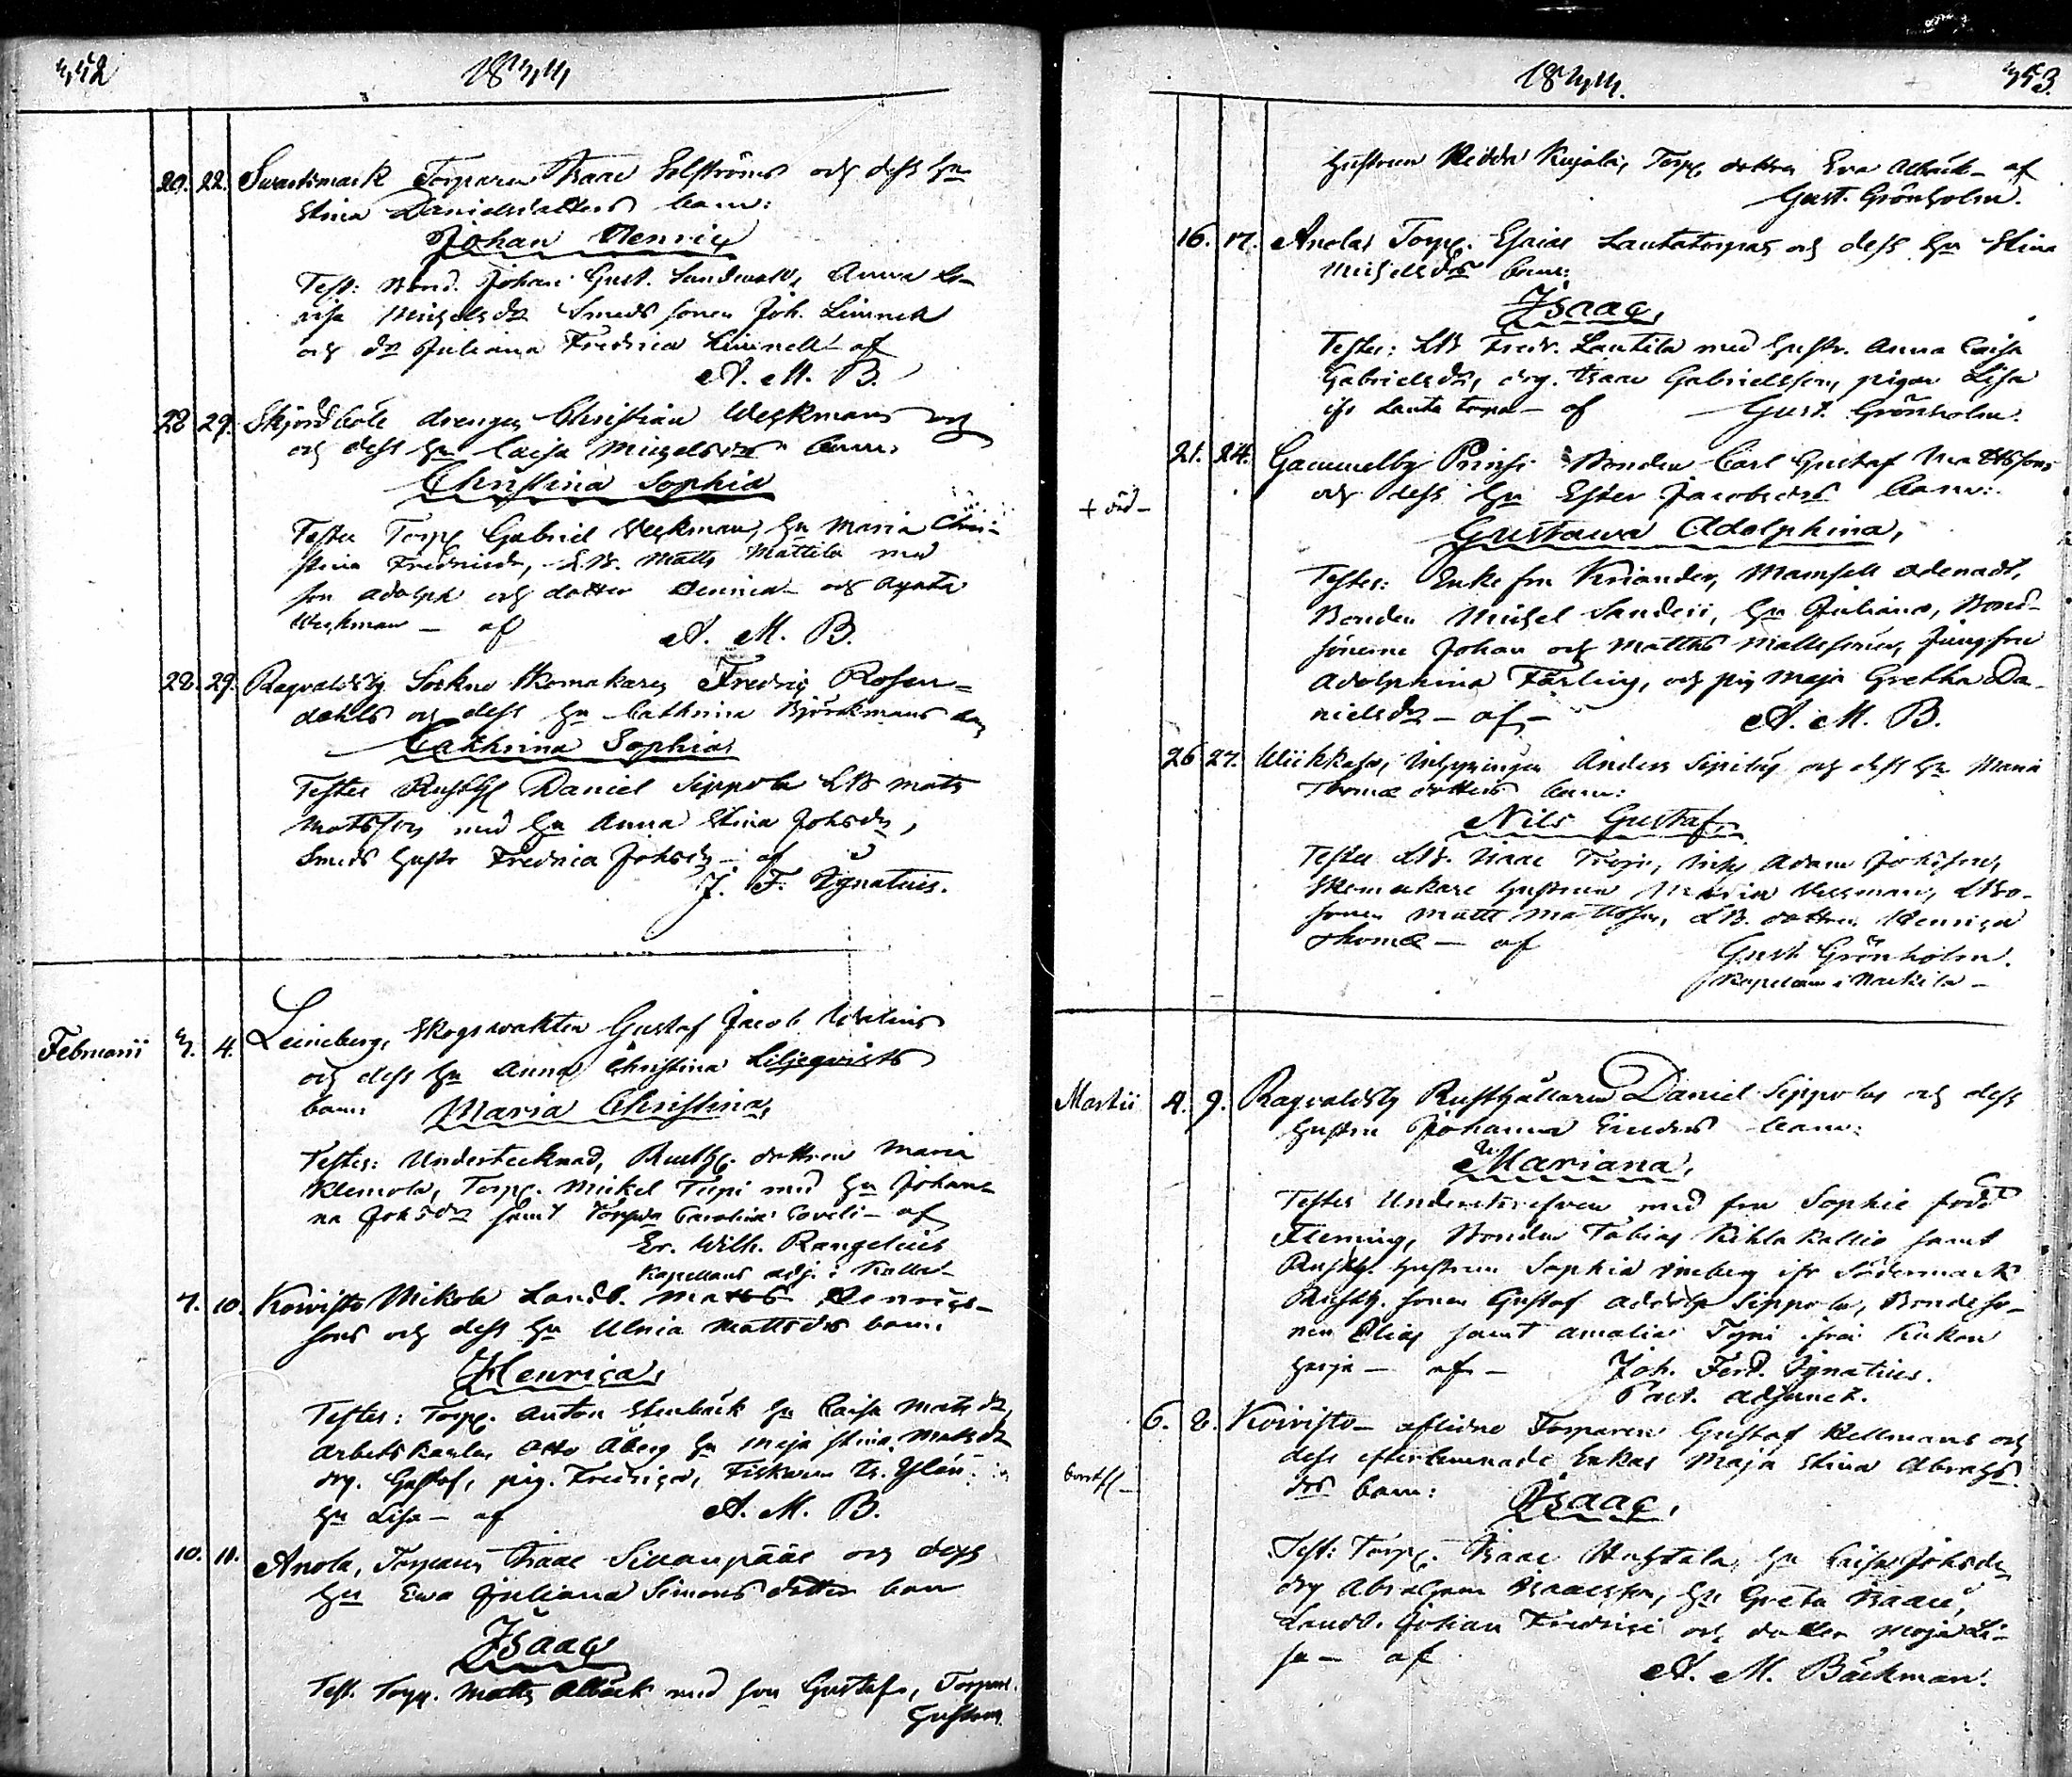 352
1844
20. 22. Swartsmark Torparen Isaac Solströms och dess hu
Stina Danielsdotters barn:
Johan Henric
Test: Bond. Johan Gust. Sandwall, Anna Lo-
visa Michelsdr Smeds sonen Joh. Linnell
och dr Juliana Fredrica Linnell af
A. M. B.
28 29. Skjordböle drengen Christian Weckmans och
och dess hu Caisa Michelsdrs barn.
Christina Sophia
Testes Torp. Gabriel Weckman, hu Maria Chri-
stina Fredricsdr, LB. Matts Mattila med
son Adolph och dotter Hennica och Agata
Weckman – af A. M. B.
28. 29. Ragvaldsby Sockne skomakaren Fredric Rosen-
dahls och dess hu Cathrina Björkmans barn
Cathrina Sophia
Testes Rusth. Daniel Sippola LB Mats
Matsson med hu Anna Stina Johsdr,
Smeds hustr Fredrica Johsdr – af
J. F. Ignatius.
Februarii 3. 4. Leineberg, Skogswakten Gustaf Jacob
och dess hu Anna Christina Liljeqvists
barn: Maria Christina,
Testes: Undertecknad, Rusth. dottren Maria
Klemola, Torp. Mickel Tupi med hu Johan-
na Johsdr samt Torpdr Carolina – af
Er. Wilh. Rangelius
Kapellans adj. i
7. 10. Koivisto Mikola Landb. Matts Henrics-
sons och dess hu Ulrica Mattsdrs barn.
Henrica,
Testes: Torp. Anton Stenbäck hu Caisa Matsdr,
Arbetskarlen Otto Åberg hu Maja Stina Matsdr
drg. Gustaf, pig. Fredrica, Fiskaren Is.
hu Lisa – af A. M. B.
10. 11. Anola, Torparen Isaac och dess
hu Ewa Juliana Simonsdotters barn
Isaac
Test. Torp. Matts Albäck med son Gustaf, Torpar
hustrun
1844.
353.
hustrun Hedda Kujala, Torp. dotter Eva Albäck – af
Gust. Grönholm.
16. 17. Anola, Torp. Esaias Lautatorpas och dess hu Stina
Michelsdrs barn:
Isaac,
Testes: LB Fredr. Lautila med hustr. Anna Caisa
Gabrielsdr, drg. Isaac Gabrielsson, pigan Lisa
ifr Lautatorpa – af Gust. Grönholm.
21. 24. Gammelby Prinsi Bonden Carl Gustaf Mattssons
och dess hu Ester Jacobsdrs barn:
+ död –
Gustawa Adolphina,
Testes: Enkefru Kriander, Mamsell Adenadt,
Bonden Michel Sanderi, hu Juliana, Bond-
sönerne Johan och Matths Mattssöner, Jungfru
Adolphina Färling, och pig Maja Gretha Da-
nielsdr – af – A. M. B.
26 27. Wiikkala, Inhysingen Anders Sipilas och dess hu Maria
Thomædotters barn:
Nils Gustaf,
Testes LB. Isaac, Inhs Adam Johansson,
Skomakare hustrun Maria Weckman, LBo-
sonen Matts Mattsson, LB. dottren Henrica
Thomæ – af Gust. Grönholm.
Kapellan i Nackila –
Martii 4. 9. Ragvaldsby Rusthållaren Daniel Sippolas och dess
hustru Johanna Ericsdrs barn:
Mariana,
Testes Underskrefven med fru Sophie född
Fleming, Bonden Tobias Kihlakallio samt
Rusth. hustrun Sophia Ineberg ifr Södermark
Rusth. sonen Gustaf Adolph Sippola, Bondeso-
nen Elias samt Amalia Tyni ifrån Kukon
harja – af – Joh. Ferd. Ignatius.
Past. adjunct.
6. 8. Koivisto – aflidne Torparen Gustaf Kellmans och
dess efterlemnade Enkas Maja Stina Abrahs-
drs barn: Isaac,
Test: Torp. Isaac Huhtala, hu Caisa Johsdr
drg Abraham Isaacsson, hu Greta Isaacs,
Landb. Johan Fredrici och dotter Maja Li-
sa – af
A. M. Bäckman.